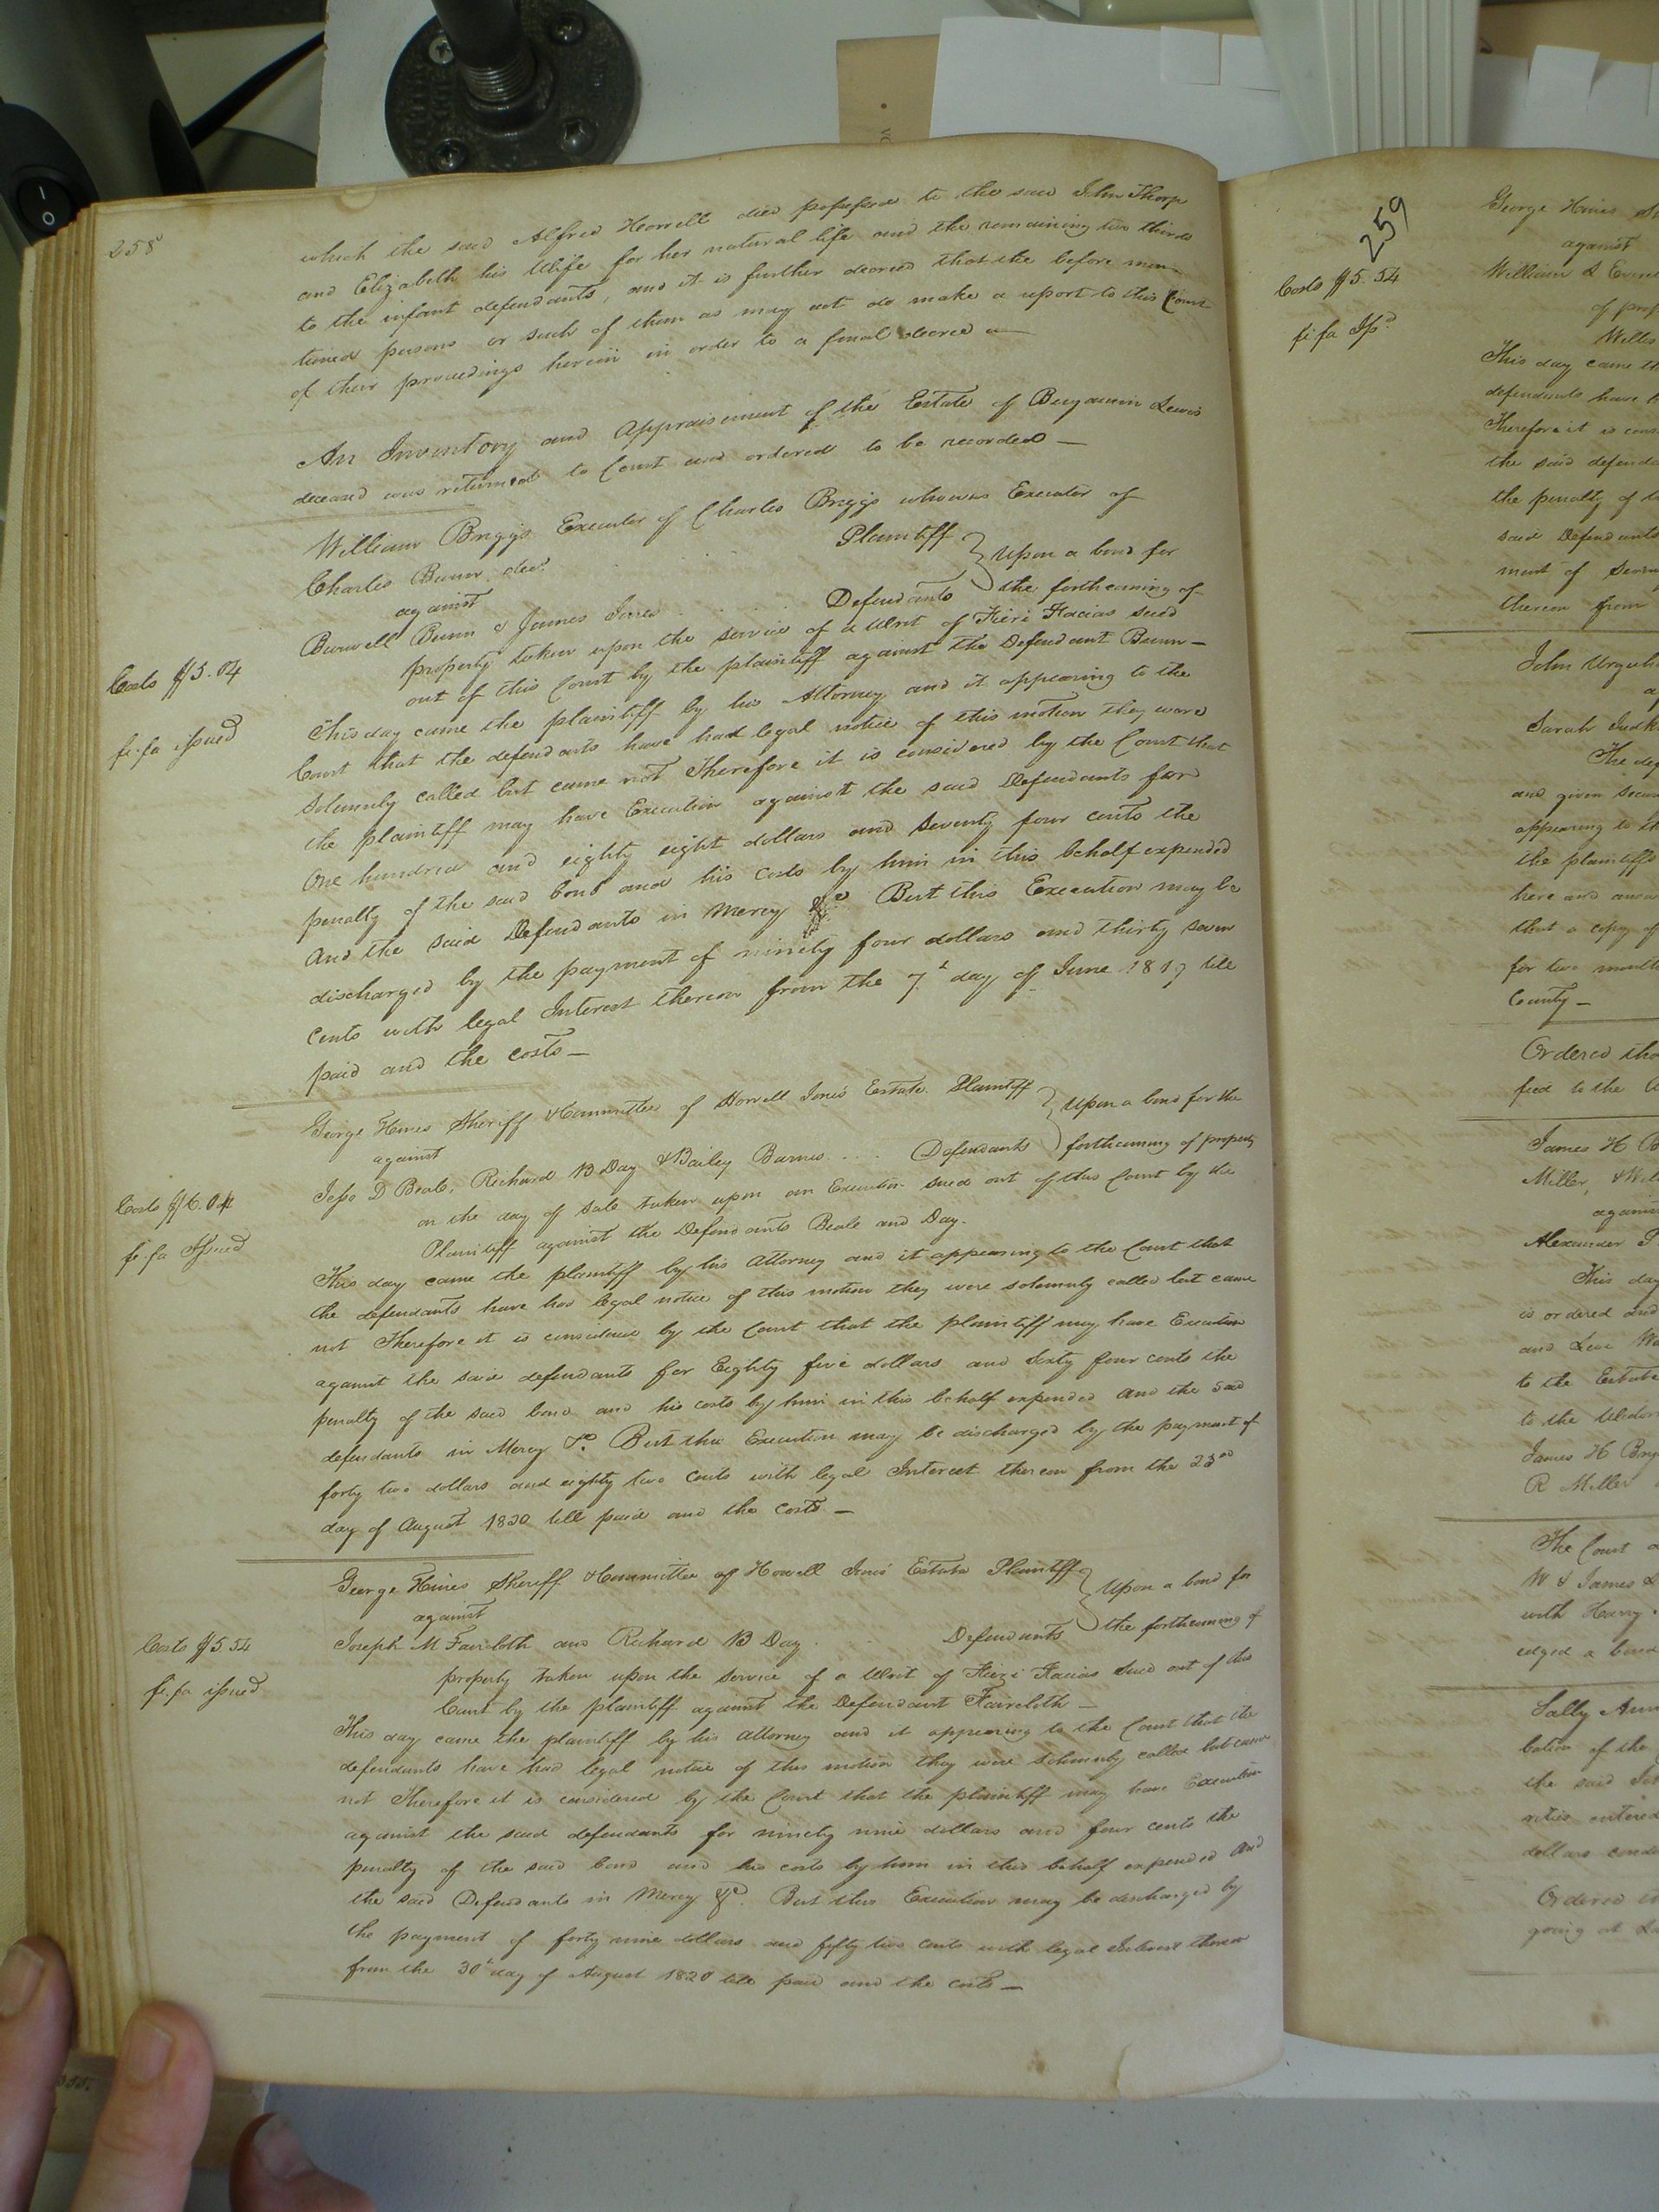 258
which the said Alfred Horrell died possessed to the said John Thorp
and Elizabeth his Wife for her natural life and the remaining two thirds
to the infant defendants, and it is further decreed that the before men=
tioned persons or such of them as may act do make a report to this Court
of their proceedings herein in order to a final decree
An Inventory and Appraisement of the Estate of Benjamin Lewis
deceased was returned to Court and ordered to be recorded —
William Briggs Executor of Charles Briggs who was Executor of
Charles Bunn decd. Plaintiff
against
Upon a bond for
Burwell Bunn & James Jones Defendants the forthcoming of
property taken upon the service of a Writ of Fieri Facias sued
out of this Court by the plaintiff against the Defendant Bunn —
Costs $5.04
fi. fa issued
This day came the plaintiff by his Attorney and it appearing to the
Court that the defendants have had legal notice of this motion they were
solemnly called but came not Therefore it is considered by the Court that
the plaintiff may have Execution against the said Defendants for
One hundred and eighty eight dollars and seventy four cents the
penalty of the said bond and his costs by him in this behalf expended
And the said Defendants in Mercy &c But this Execution may be
discharged by the payment of ninety four dollars and thirty seven
Cents with legal Interest thereon from the 7th day of June 1819 till
paid and the costs —
George Hines Sheriff & Committee of Howell Jones Estate Plaintiff
against
Upon a bond for the
Jesse D Beale, Richard B Day & Bailey Barnes ... Defendants forthcoming of property
on the day of sale taken upon an Execution sued out of this Court by the
Plaintiff against the Defendants Beale and Day.
Costs $6.04
fi. fa Issued
This day came the plaintiff by his Attorney and it appearing to the Court that
the defendants have had legal notice of this motion they were solemnly called but came
not Therefore it is considered by the Court that the plaintiff may have Execution
against the said defendants for Eighty five dollars and Sixty four cents the
penalty of the said bond and his costs by him in this behalf expended And the said
defendants in Mercy &c. But this Execution may be discharged by the payment of
forty two dollars and eighty two Cents with legal Interest thereon from the 23rd
day of August 1820 till paid and the costs —
George Hines Sheriff & Committee of Howell Jones Estate Plaintiff
against
Upon a bond for
Joseph M Faircloth and Richard B Day Defendants the forthcoming of
property taken upon the service of a Writ of Fieri Facias sued out of this
Court by the plaintiff against the Defendant Faircloth —
Costs $5 54
fi. fa issued
This day came the plaintiff by his Attorney and it appearing to the Court that the
defendants have had legal notice of this motion they were solemnly called but came
not Therefore it is considered by the Court that the plaintiff may have Execution
against the said defendants for ninety nine dollars and four cents the
penalty of the said bond and his costs by him in this behalf expended And
the said Defendants in Mercy &c. But this Execution may be discharged by
the payment of forty nine dollars and fifty two cents with legal Interest thereon
from the 30th day of August 1820 till paid and the costs —
259
Costs $5.54
fi fa Issd
George Hines Sh
against
William L
of prop
Willis
This day came th
defendants have h
Therefore it is cons
the said defenda
the penalty of
said Defendants
ment of Seven
thereon from
John Urquh
Sarah Judk
The dep
and given secur
appearing to th
the plaintiffs
here and answ
that a copy of
for two month
County —
Ordered tha
fied to the
James H B
Miller, & Wil
against
Alexander P
This day
is ordered and
and Levi Wa
to the Estate
to the Widow
James H Bry
R Miller
The Court
W & James
with Harry
edged a bond
Sally Ann
bation of the
the said
rities entered
dollars condi
Ordered
going at